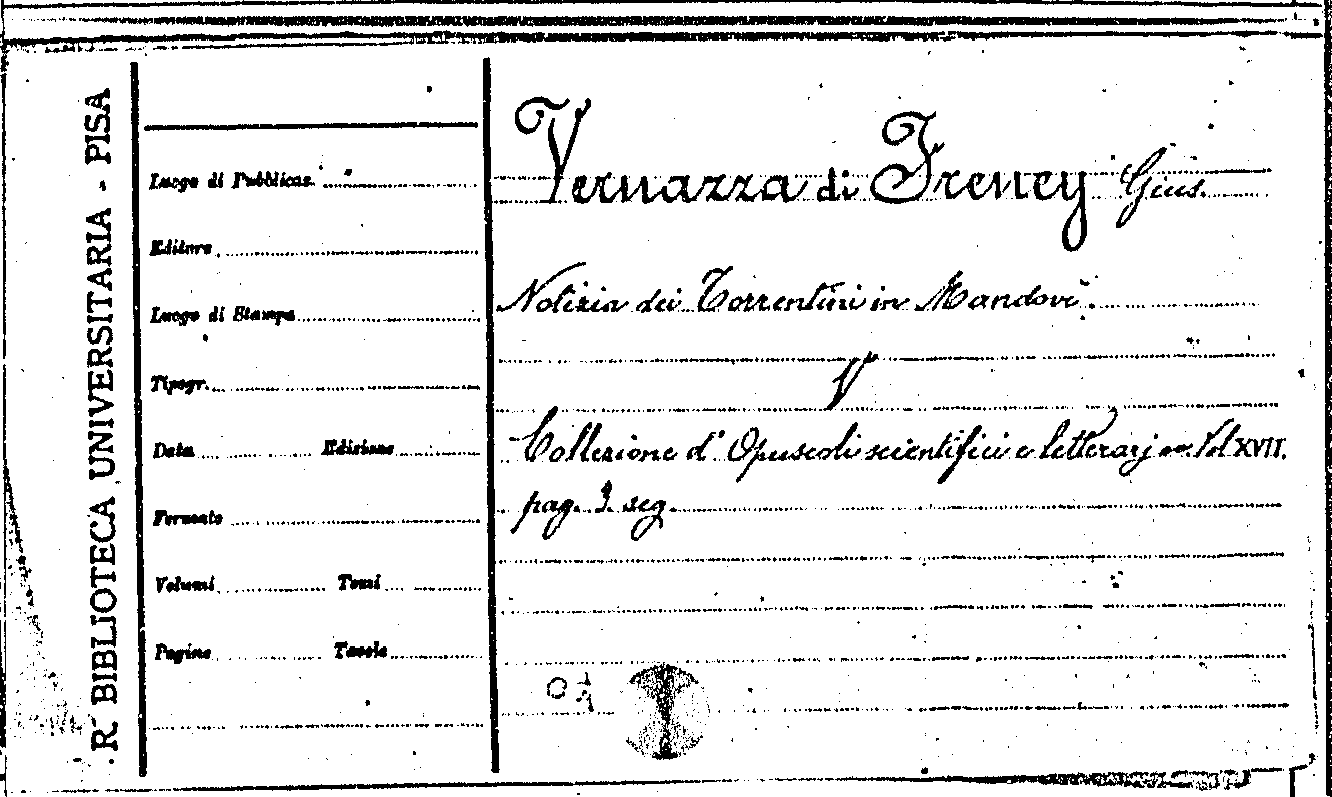 R. BIBLIOTECA UNIVERSITARIA - PISA
Luogo di Pubblicaz.
Editore
Luogo di Stampa
Tipogr.
Data Edizione
Formato
Volumi Tomi
Pagine Tavole
Vernazza di Freney Gius.
Notizia dei Torrentini in Mandovi.
Collezione d' Opuscoli scientifici e letterarj Vol XVII.
pag. 3. seg.